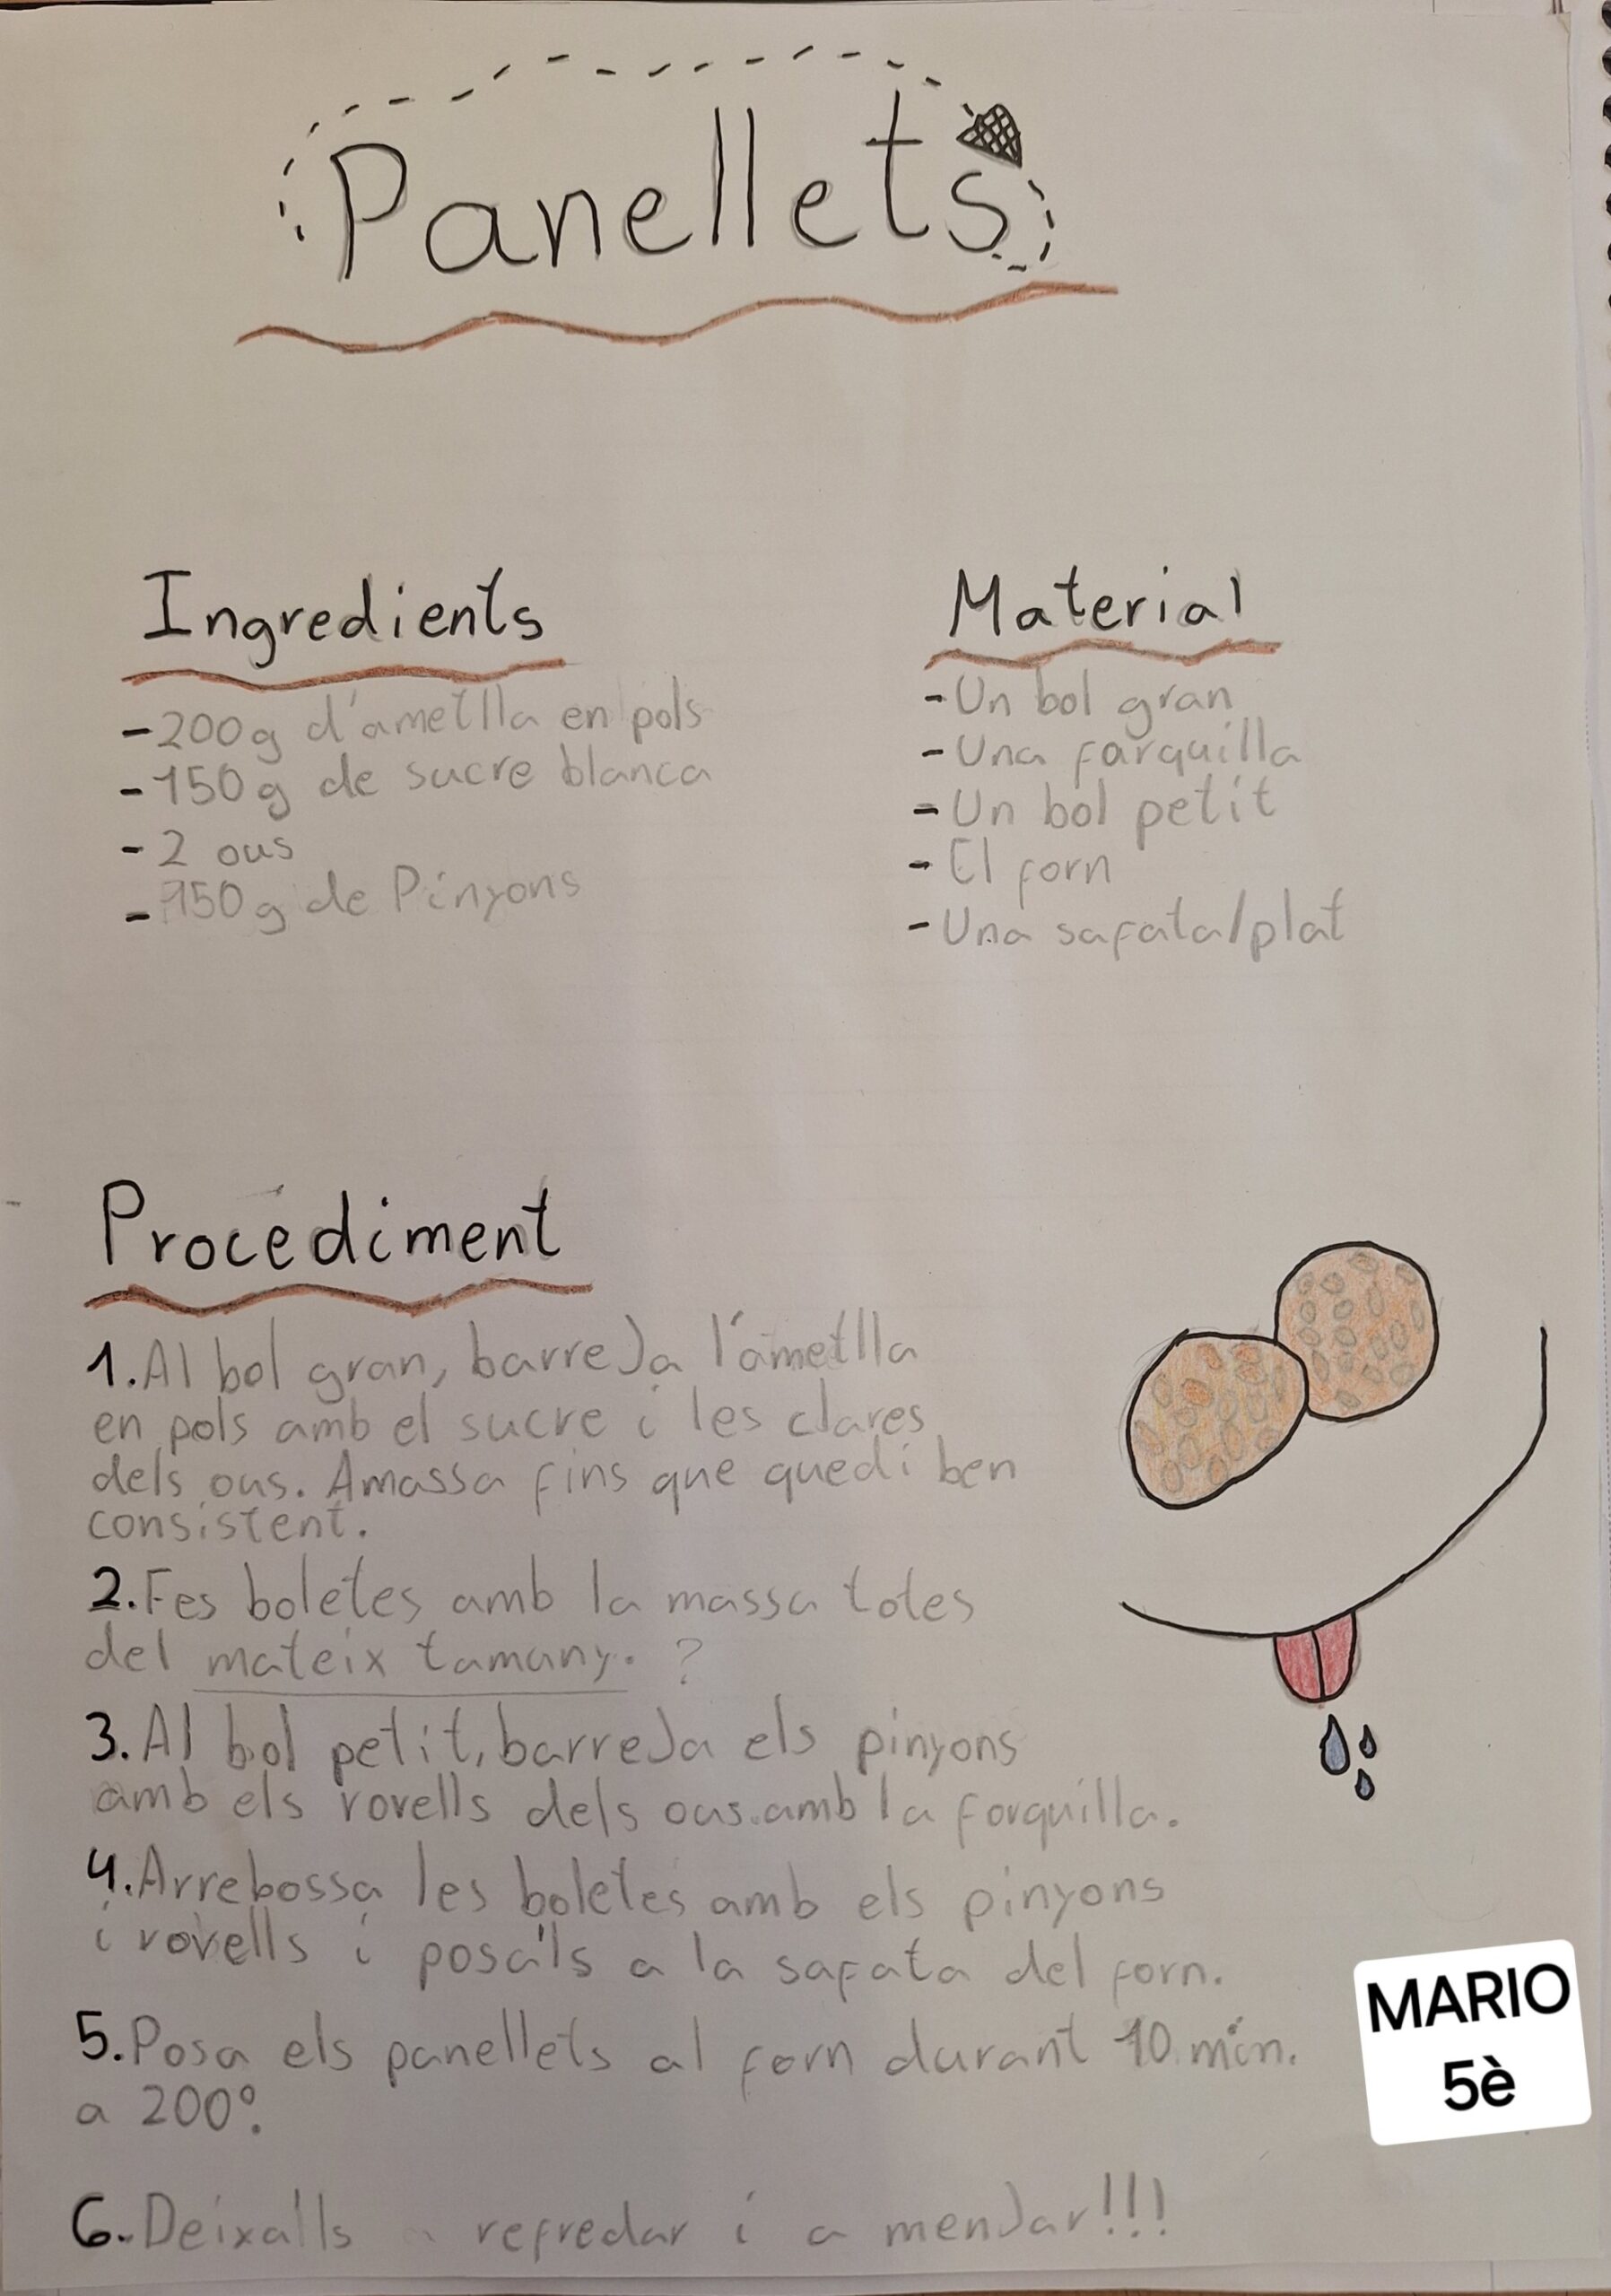 Panellets
Ingredients
-200g d'ametlla en pols
-150g de sucre blanca
-2 ous
-150g de Pinyons
Material
-Un bol gran
-Una forquilla
-Un bol petit
-El forn
-Una safata/plat
Procediment
1.Al bol gran, barreja l'ametlla
en pols amb el sucre i les clares
dels ous. Amassa fins que quedi ben
consistent.
2.Fes boletes amb la massa totes
del mateix tamany. ?
3.Al bol petit, barreja els pinyons
amb els rovells dels ous.amb la forquilla.
4.Arrebossa les boletes amb els pinyons
i rovells i posa'ls a la safata del forn.
5.Posa els panellets al forn durant 10 min.
a 200º.
6.Deixa'ls a refredar i a menjar!!!
MARIO
5è